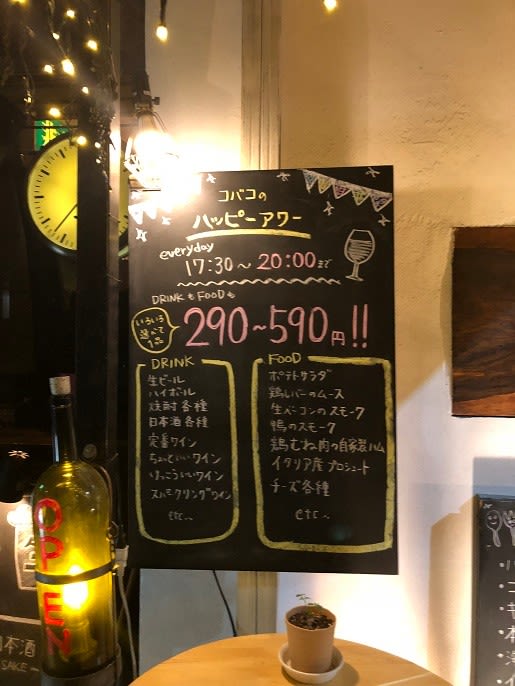 コバコの
ハッピーアワー
everyday
17:30~20:00まで
DRINKもFOODも
いろいろ
選べて
1品
290~590円!!
DRINK
生ビール
ハイボール
焼酎各種
日本酒各種
定番ワイン
ちょっといいワイン
けっこういいワイン
スパークリングワイン
etc~
FOOD
ポテトサラダ
鶏レバーのムース
生ベーコンのスモーク
鴨のスモーク
鶏むね肉の自家製ハム
イタリア産プロシュート
チーズ各種
etc~
OPEN
本酒
SAKE